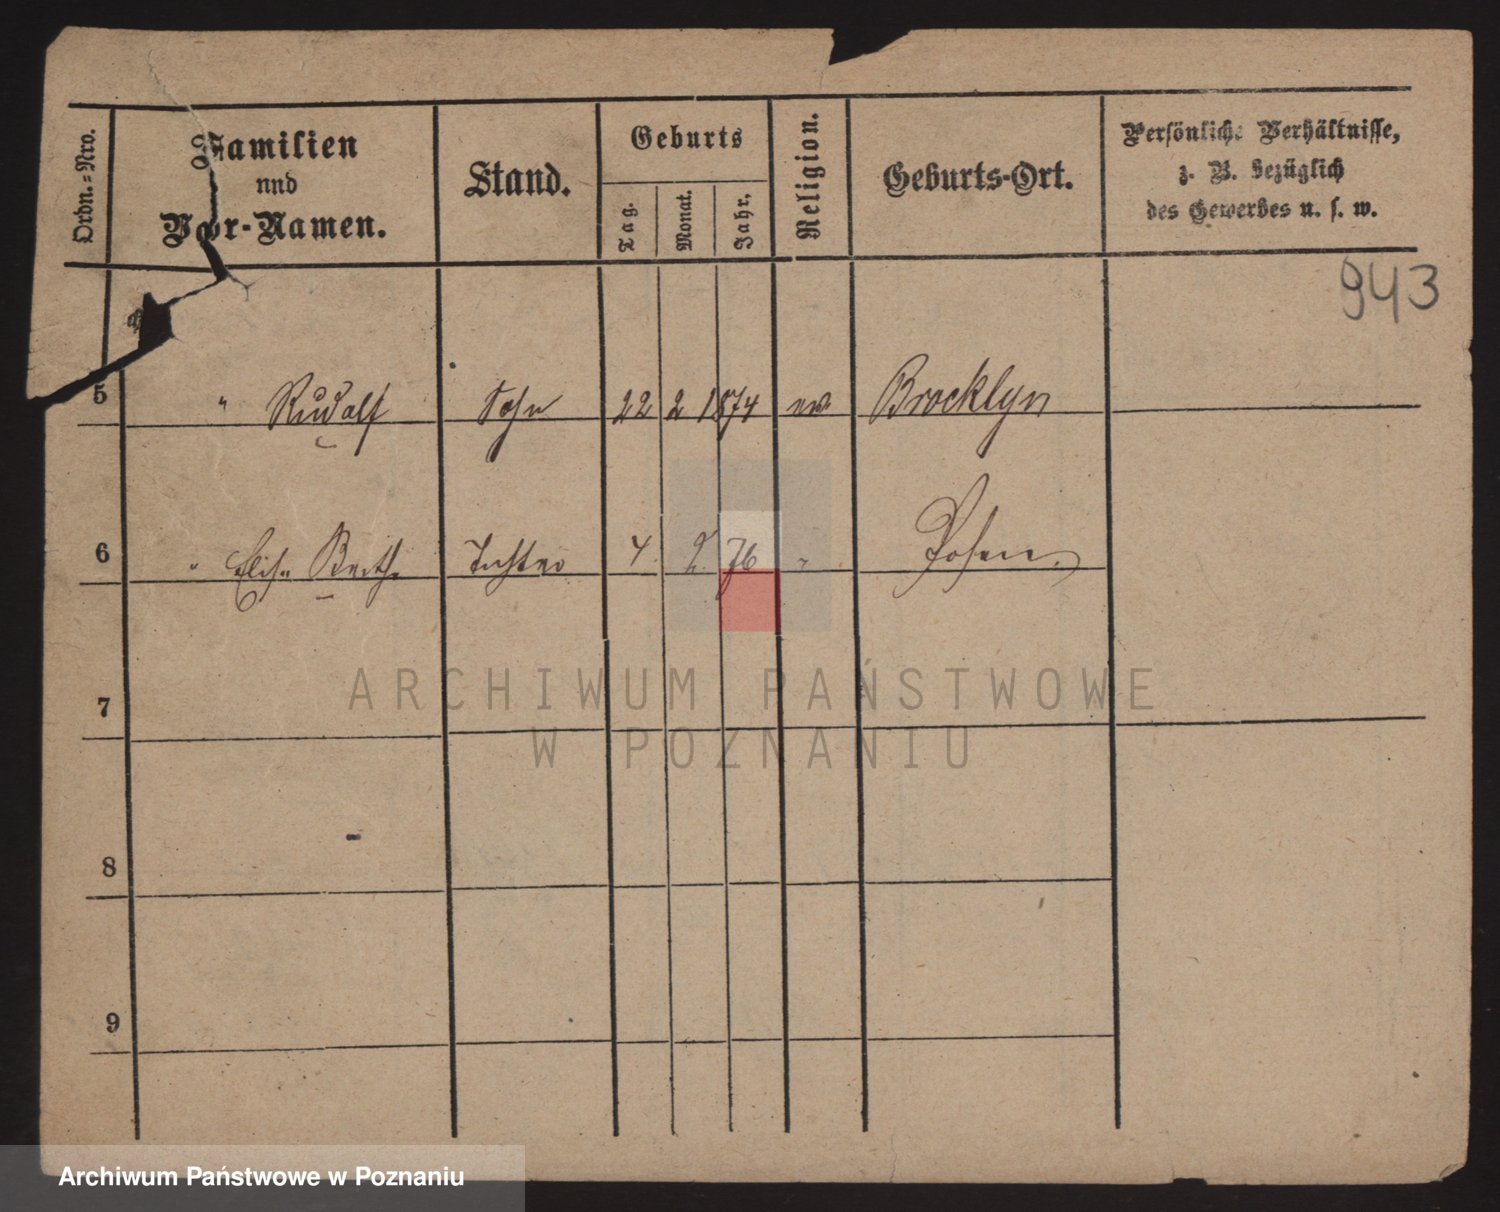 Ordn.-Nro.
Familien
nnd
Vor-Namen.
Stand.
Geburts
Tag.
Monat.
Jahr.
Religion.
Geburts-Ort.
Persönliche Verhältnisse,
z. B. bezüglich
des Gewerbes u. s. w.
943
5 " Rudolf Sohn 22 2 1874 ev Brocklyn
6 " Elise Bertha Tochter 4 2 76 " Posen.
7
8
9
ARCHIWUM PAŃSTWOWE
W POZNANIU
Archiwum Państwowe w Poznaniu